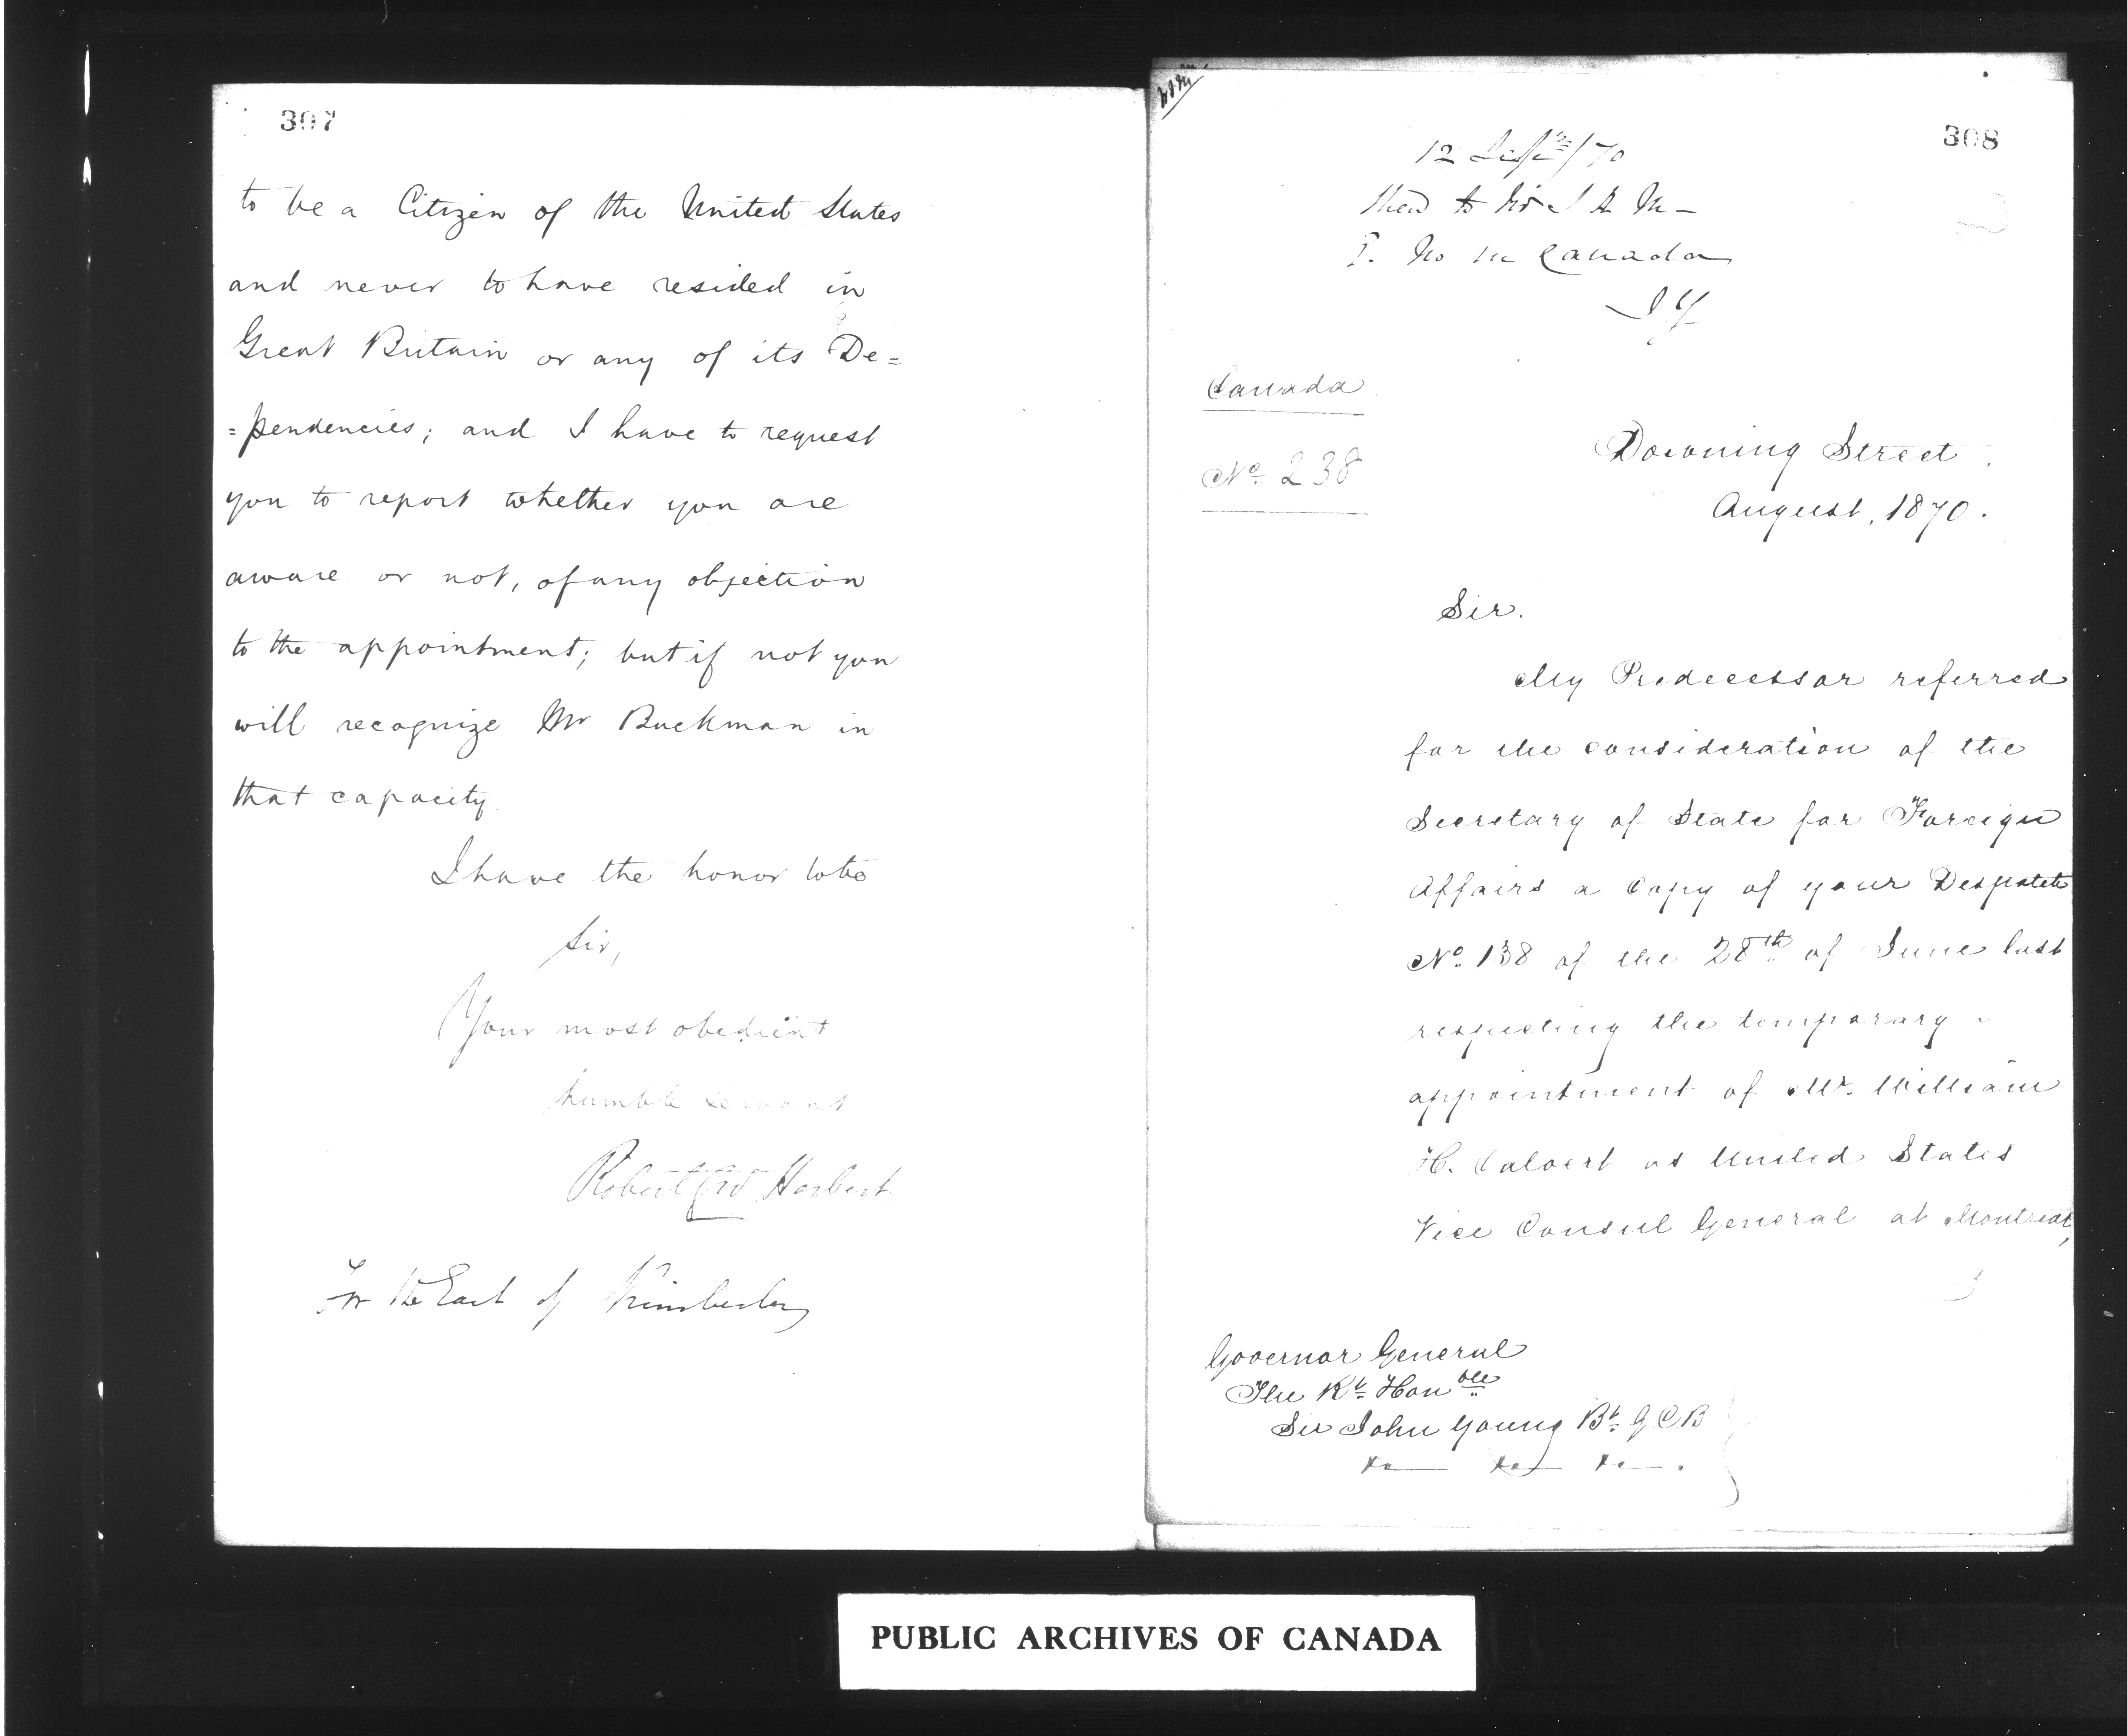 307
to be a Citizen of the United States
and never to have resided in
Great Britain or any of its De=
=pendencies; and I have to request
you to report whether you are
aware or not, of any objection
to the appointment; but if not you
will recognize Mr Buckman in
that capacity.
I have the honor to be
Sir,
Your most obedient
humble servant
Robert G W Herbert
For the Earl of Kimberley
308
12 Sept /70
to Sir J A M—
in Canada
J Y
Canada
No. 238
Downing Street
August, 1870.
Sir.
My Predecessor referred
for the consideration of the
Secretary of State for Foreign
Affairs a Copy of your Despatch
No. 138 of the 28th of June last
respecting the temporary
appointment of Mr. William
H. Calvert as United States
Vice Consul General at Montreal,
Governor General
The Rt. Honble
Sir John Young Bt. G C B
PUBLIC ARCHIVES OF CANADA